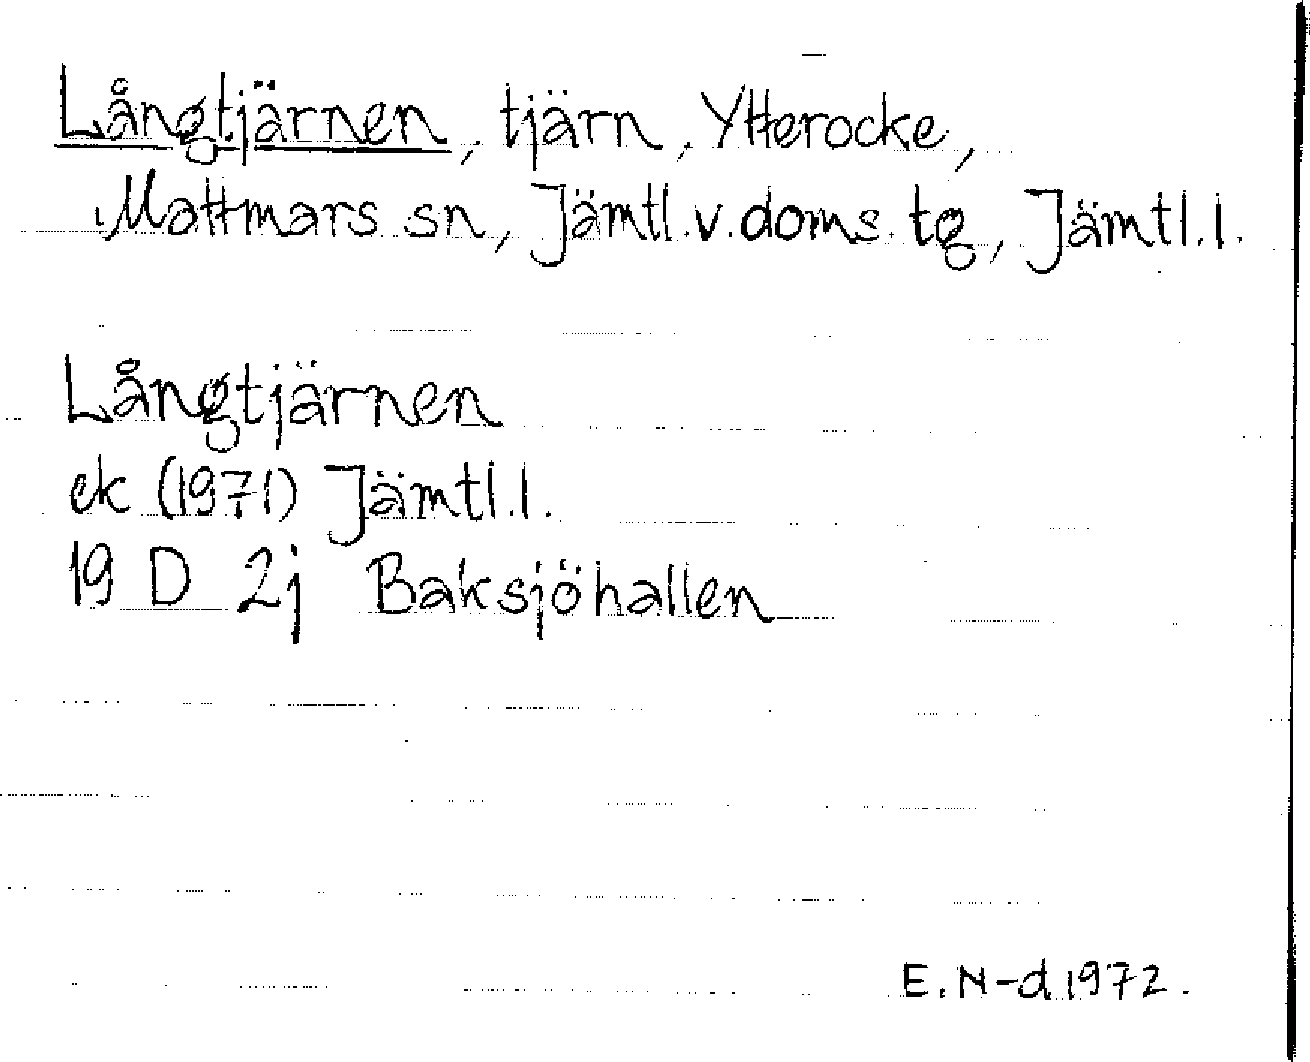 Långtjärnen, tjärn, Ytterocke,
Mattmars sn, Jämtl. v. doms. tg, Jämtl. l.
Långtjärnen
ek (1971) Jämtl. l.
19 D 2j Baksjöhallen
E. N-d 1972.